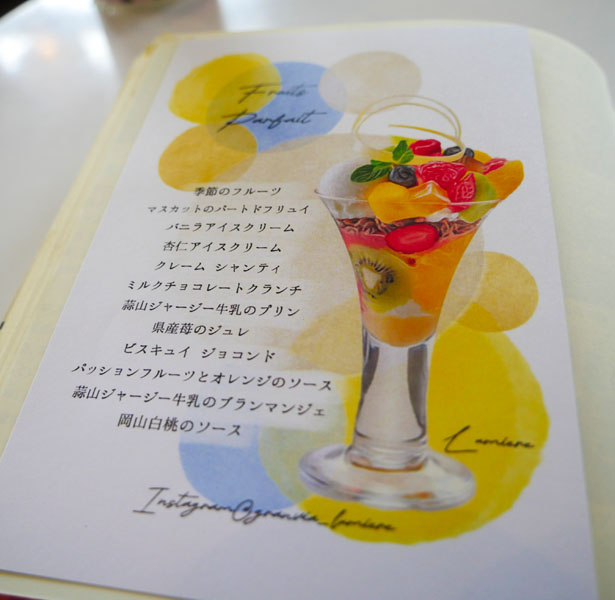 Fruits
Parfait
季節のフルーツ
マスカットのパートドフリュイ
バニラアイスクリーム
杏仁アイスクリーム
クレーム シャンティ
ミルクチョコレートクランチ
蒜山ジャージー牛乳のプリン
県産苺のジュレ
ビスキュイ ジョコンド
パッションフルーツとオレンジのソース
蒜山ジャージー牛乳のブランマンジェ
岡山白桃のソース
Lumiere
Instagram@granvia_lumiere